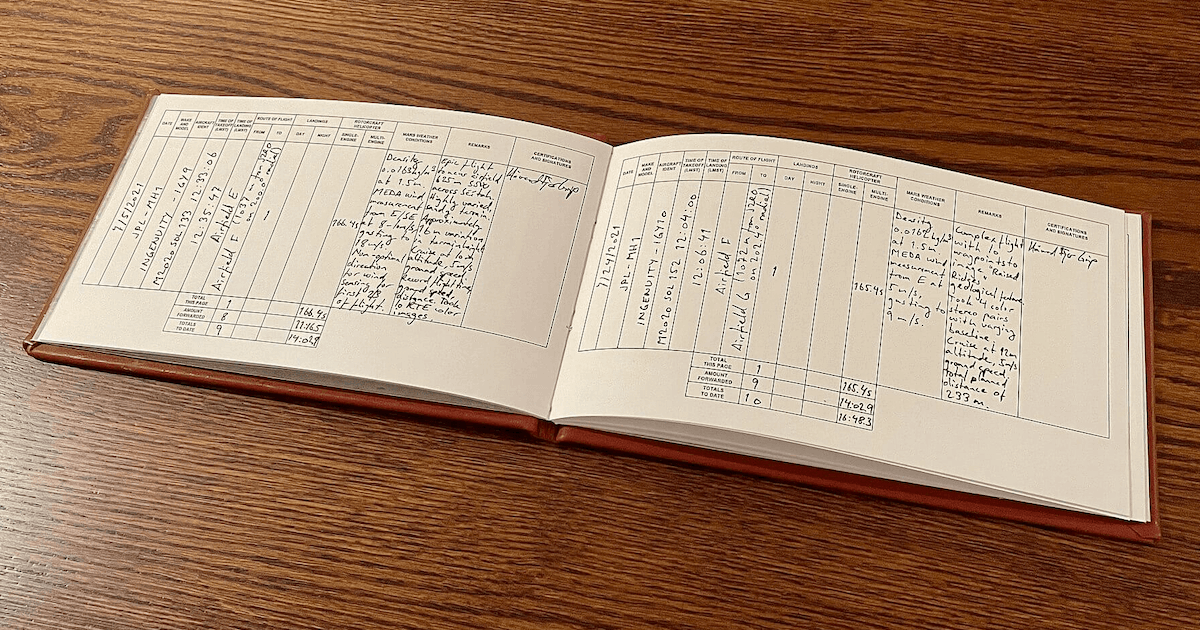 DATE
MAKE
AND
MODEL
AIRCRAFT
IDENT
TIME OF
TAKEOFF
(LMST)
TIME OF
LANDING
(LMST)
ROUTE OF FLIGHT
FROM
TO
LANDINGS
DAY
NIGHT
ROTORCRAFT
HELICOPTER
SINGLE-
ENGINE
MULTI-
ENGINE
MARS WEATHER
CONDITIONS
REMARKS
CERTIFICATIONS
AND SIGNATURES
7/5/2021
JPL-MH1
INGENUITY - IGY9
M2020 SOL 133 12:33:06
12:35:47
Airfield E
1
166.4s
Density
0.0163kg/m³
at 1.5m
MEDA wind
measurement
from E/SE
at 8-
gusting to
18m/s
Non-optimal
direction
for wind
sensing for
first
of flight.
Epic flight
to new airfield
625m SSW
across Séítah.
Highly varied,
sandy terrain.
Approximately
16m variation
in terrain height
Cruise at 10m
altitude, 5m/s
ground speed
Record flight time,
ground speed,
distance. Took
10 RTE color
images
Håvard Fjær Grip
TOTAL
THIS PAGE 1 166.4s
AMOUNT
FORWARDED 8
TOTALS
TO DATE 9
DATE
MAKE
AND
MODEL
AIRCRAFT
IDENT
TIME OF
TAKEOFF
(LMST)
TIME OF
LANDING
(LMST)
ROUTE OF FLIGHT
FROM
TO
LANDINGS
DAY
NIGHT
ROTORCRAFT
HELICOPTER
SINGLE-
ENGINE
MULTI-
ENGINE
MARS WEATHER
CONDITIONS
REMARKS
CERTIFICATIONS
AND SIGNATURES
7/24/2021
JPL-MH1
INGENUITY - IGY10
M2020 SOL 152 12:04:00
12:06:49
Airfield F
Airfield G
1
165.4s
Density
at 1.5m
MEDA wind
measurement
from E at
5m/s,
gusting to
9m/s.
Complex flight
with 10
waypoints to
image "Raised
Ridges"
geological feature.
Took 4 color
stereo pairs
with varying
baseline.
Cruise at 12m
altitude, 5m/s
ground speed
Total planned
distance of
233m.
Håvard Fjær Grip
TOTAL
THIS PAGE 1 165.4s
AMOUNT
FORWARDED 9 14:02.9
TOTALS
TO DATE 10 16:48.3